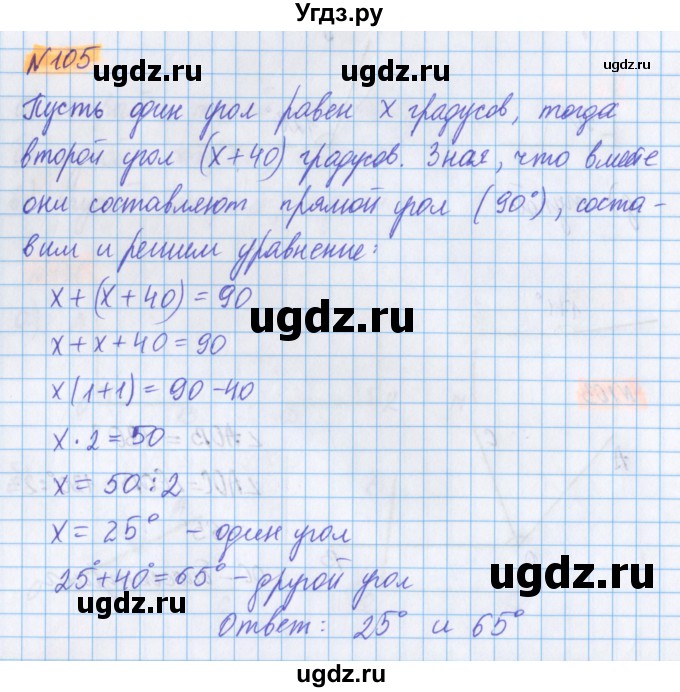 Угдз.ру
№105
ugdz.ru ugdz.ru
Пусть один угол равен x градусов, тогда
второй угол (x+40) градусов. Зная, что вместе
они составляют прямой угол (90°), соста-
ugdz.ru ugdz.ru
вим и решим уравнение:
x+(x+40)=90
ugdz.ru
x+x+40=90
x(1+1)=90-40
x·2=50
ugdz.ru ugdz.ru
x=50:2
x=25° - один угол
25°+40°=65° - другой угол
ugdz.ru ugdz.ru
Ответ: 25° и 65°
ugdz.ru